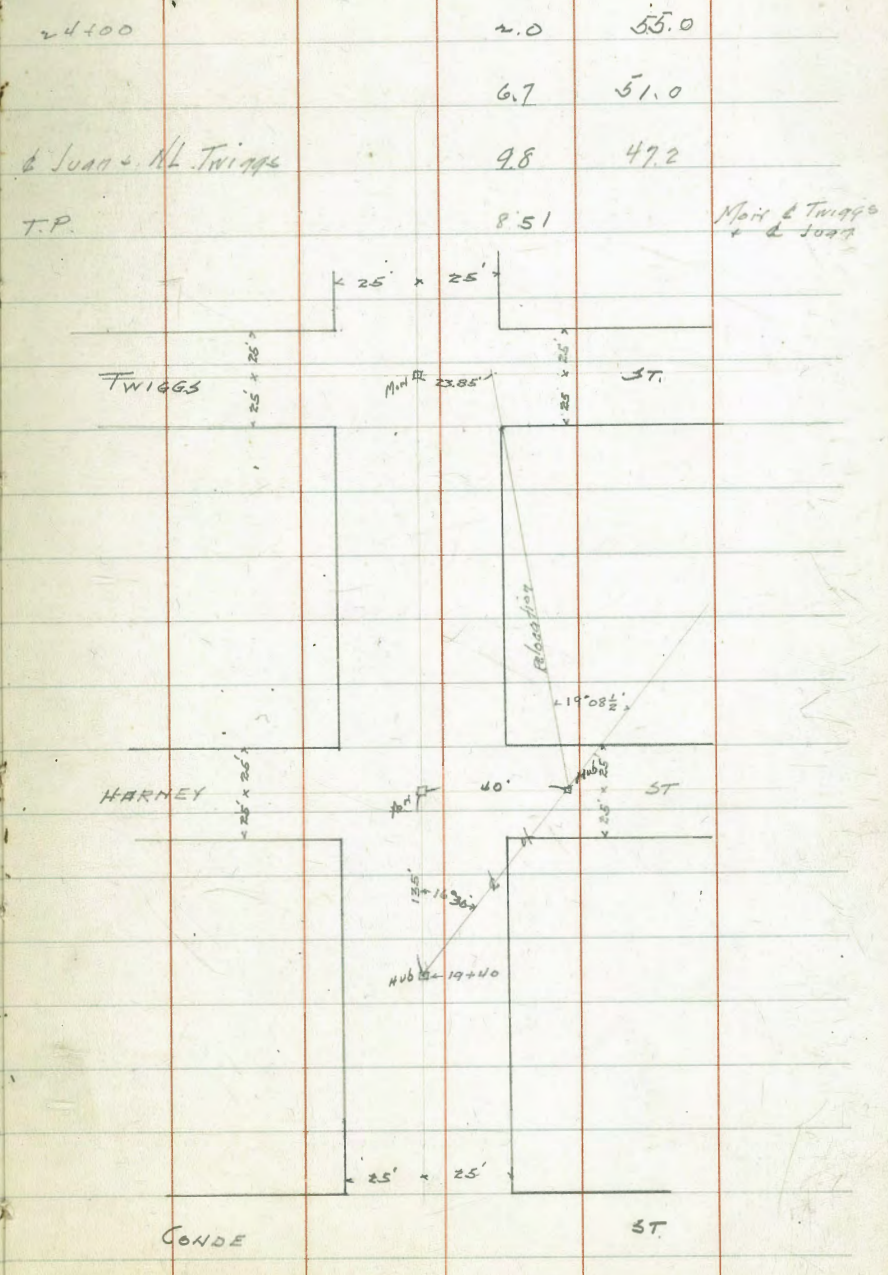 24+00 2.0 55.0
6.7 51.0
℄ Juan & NL Twiggs 9.8 47.2
T.P. 8.51 Mon ℄ Twiggs
+ ℄ Juan
25' x 25'
25' x 25'
25' x 25'
TWIGGS Mon 23.85' ST.
Relocation
19°08½'
25' x 25'
25' x 25'
HARNEY 40' Hub ST
135'
16°36'
Hub 19+40
25' x 25'
CONDE ST.